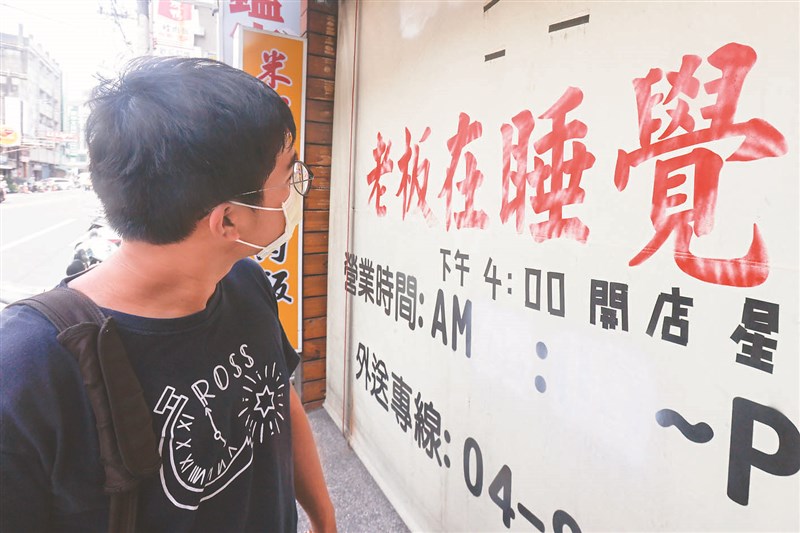 老板在睡覺
下午 4:00 開店 星
營業時間: AM :
~P
外送專線: 04-
米
ROSS